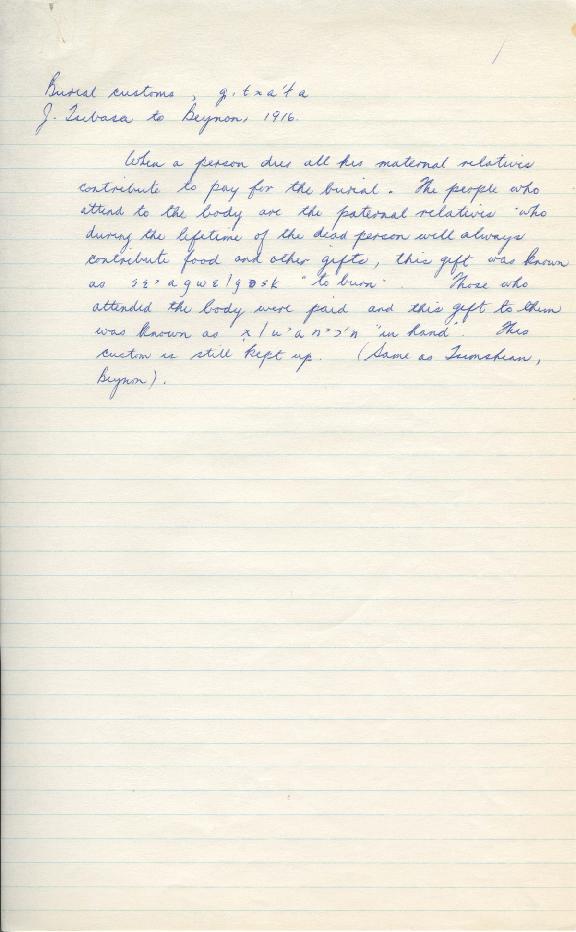 Burial customs, g.itxa'ła
J. Tubasa to Beynon, 1916.
When a person dies all his maternal relatives
contribute to pay for the burial. The people who
attend to the body are the paternal relatives who
during the lifetime of the dead person will always
contribute food and other gifts, this gift was known
as "to burn". Those who
attended the body were paid and this gift to them
was known as "in hand". This
custom is still kept up. (Same as Tsimshian,
Beynon).